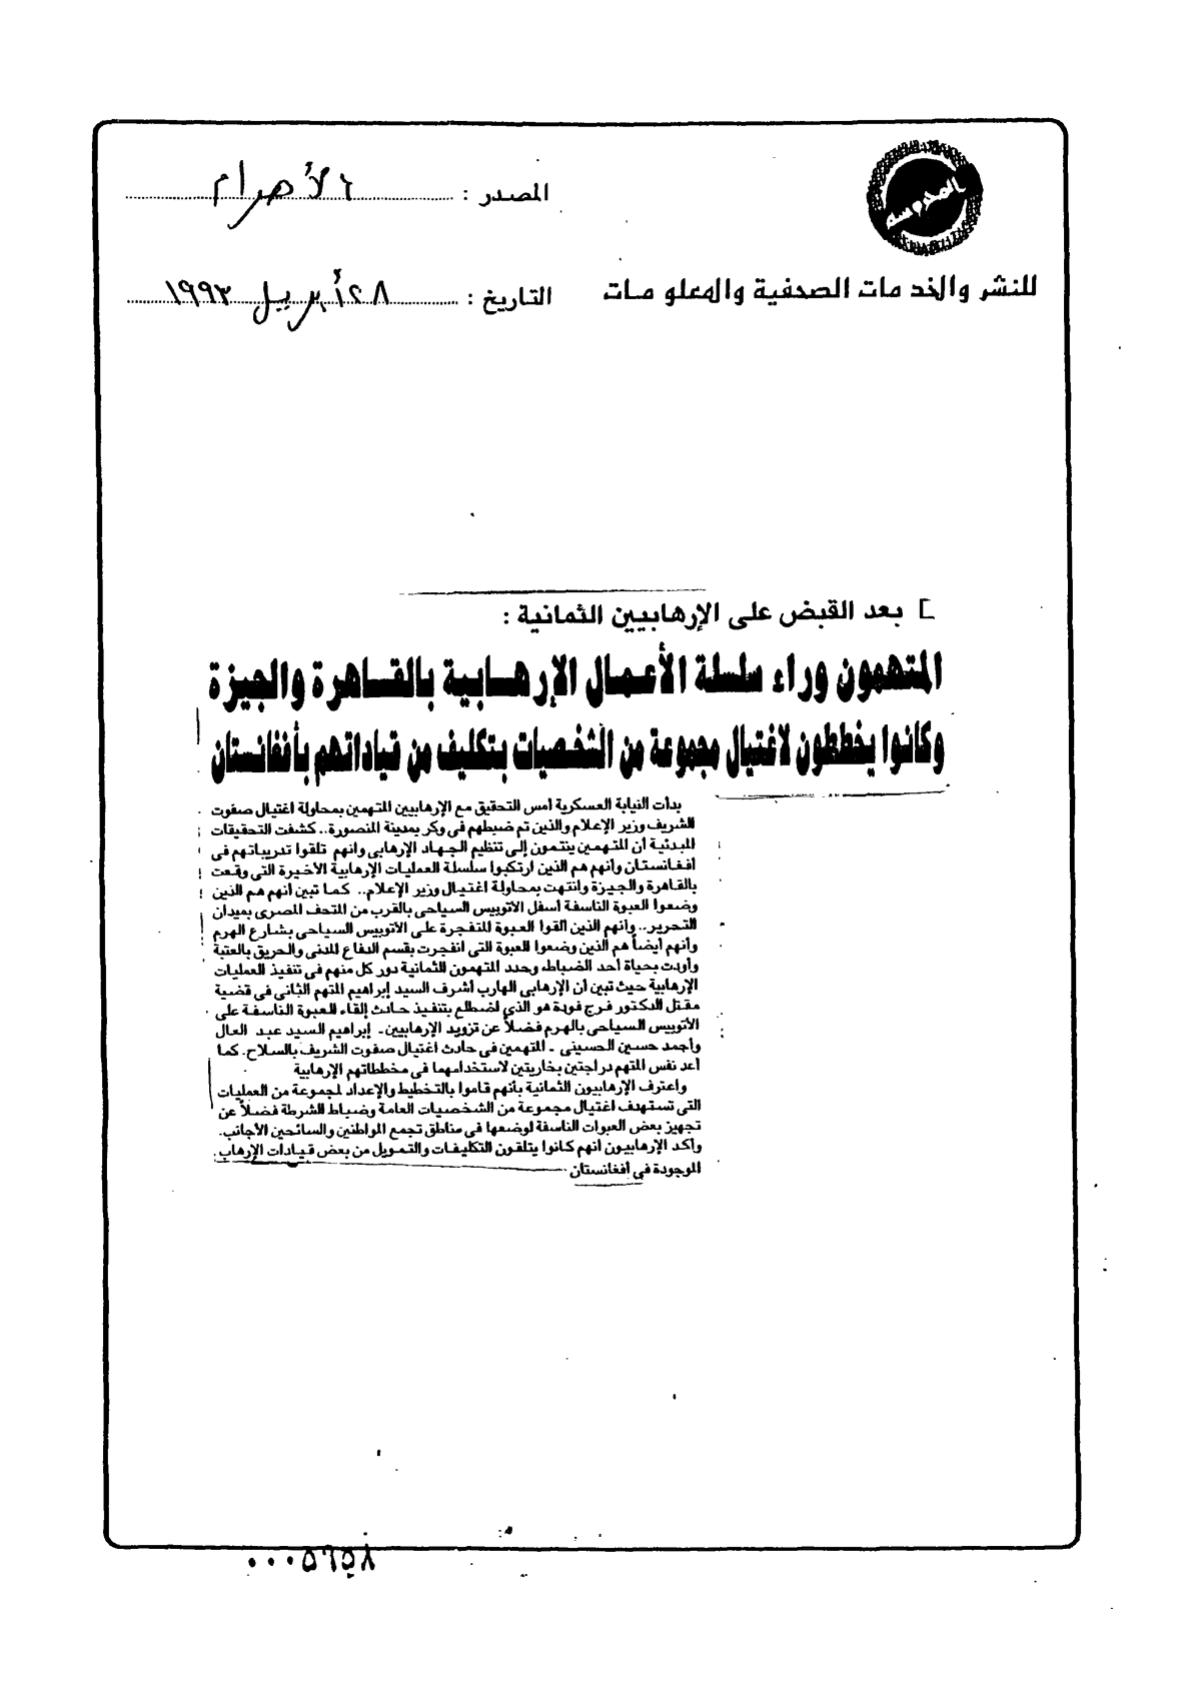 المحروسة
المصدر : الأهرام
للنشر والخدمات الصحفية والمعلومات
التاريخ : ٢٨ أبريل ١٩٩٣
بعد القبض على الإرهابيين الثمانية :
المتهمون وراء سلسلة الأعمال الإرهابية بالقاهرة والجيزة
وكانوا يخططون لاغتيال مجموعة من الشخصيات بتكليف من قياداتهم بأفغانستان
بدأت النيابة العسكرية أمس التحقيق مع الإرهابيين المتهمين بمحاولة اغتيال صفوت
الشريف وزير الإعلام والذين تم ضبطهم فى وكر بمدينة المنصورة.. كشفت التحقيقات
المبدئية أن المتهمين ينتمون إلى تنظيم الجهاد الإرهابى وأنهم تلقوا تدريباتهم فى
أفغانستان وأنهم هم الذين ارتكبوا سلسلة العمليات الإرهابية الأخيرة التى وقعت
بالقاهرة والجيزة وانتهت بمحاولة اغتيال وزير الإعلام.. كما تبين أنهم هم الذين
وضعوا العبوة الناسفة أسفل الأتوبيس السياحى بالقرب من المتحف المصرى بميدان
التحرير.. وأنهم الذين ألقوا العبوة المتفجرة على الأتوبيس السياحى بشارع الهرم
وأنهم أيضاً هم الذين وضعوا العبوة التى انفجرت بقسم الدفاع المدنى والحريق بالعتبة
وأودت بحياة أحد الضباط. وحدد المتهمون الثمانية دور كل منهم فى تنفيذ العمليات
الإرهابية حيث تبين أن الإرهابى الهارب أشرف السيد إبراهيم المتهم الثانى فى قضية
مقتل الدكتور فرج فودة هو الذى اضطلع بتنفيذ حادث إلقاء العبوة الناسفة على
الأتوبيس السياحى بالهرم فضلاً عن تزويد الإرهابيين - إبراهيم السيد عبد العال
وأحمد حسين الحسينى - المتهمين فى حادث اغتيال صفوت الشريف بالسلاح. كما
أعد نفس المتهم دراجتين بخاريتين لاستخدامهما فى مخططاتهم الإرهابية
واعترف الإرهابيون الثمانية بأنهم قاموا بالتخطيط والإعداد لمجموعة من العمليات
التى تستهدف اغتيال مجموعة من الشخصيات العامة وضباط الشرطة فضلاً عن
تجهيز بعض العبوات الناسفة لوضعها فى مناطق تجمع المواطنين والسائحين الأجانب.
وأكد الإرهابيون أنهم كانوا يتلقون التكليفات والتمويل من بعض قيادات الإرهاب
الموجودة في أفغانستان
٠٠٠٥٦٥٨